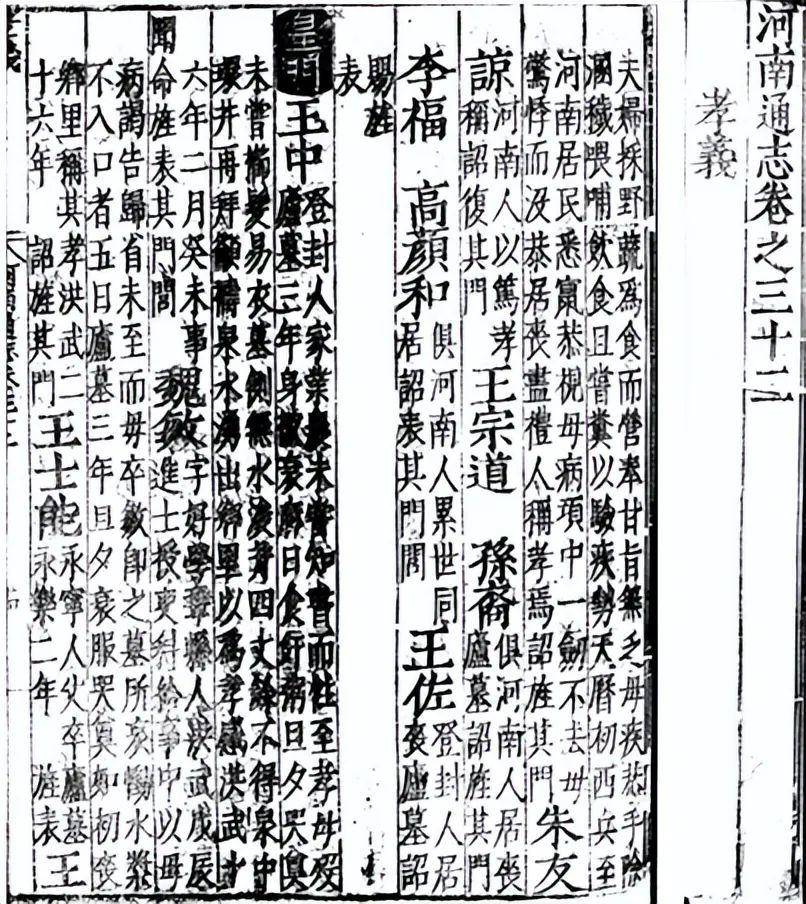 河南通志卷之三十二
孝義
夫婦採野蔬爲食而營奉甘旨無乏母疾恭手除
溷穢喂哺飲食且嘗糞以驗疾勢天曆初西兵至
河南居民悉竄恭視母病項中一劍不去母
驚悸而没恭居喪盡禮人稱孝焉詔旌其門 朱友
諒 河南人以篤孝稱詔復其門 王宗道 孫裔 俱河南人居喪廬墓詔旌其門
李福 高顏和 俱河南人累世同居詔表其門閭 王佐 登封人居喪廬墓詔
賜旌
表
皇明王中 登封人家業農未嘗知書而性至孝母歿
廬墓三年身被衰麻日食飦粥旦夕哭奠
未嘗櫛髮易衣墓側無水浚井四丈餘不得泉中
環井再拜籲禱泉水湧出鄉里以爲孝感洪武十
六年二月癸未事
聞命旌表其門閭 魏敏 字好學 縣人洪武戊辰
進士授吏科給事中以母
病謁告歸省未至而母卒敏卽之墓所哀慟水漿
不入口者五日廬墓三年旦夕衰服哭奠如初喪
鄉里稱其孝洪武二
十六年 詔旌其門 王士能 永寧人父卒廬墓
永樂二年 旌表 王